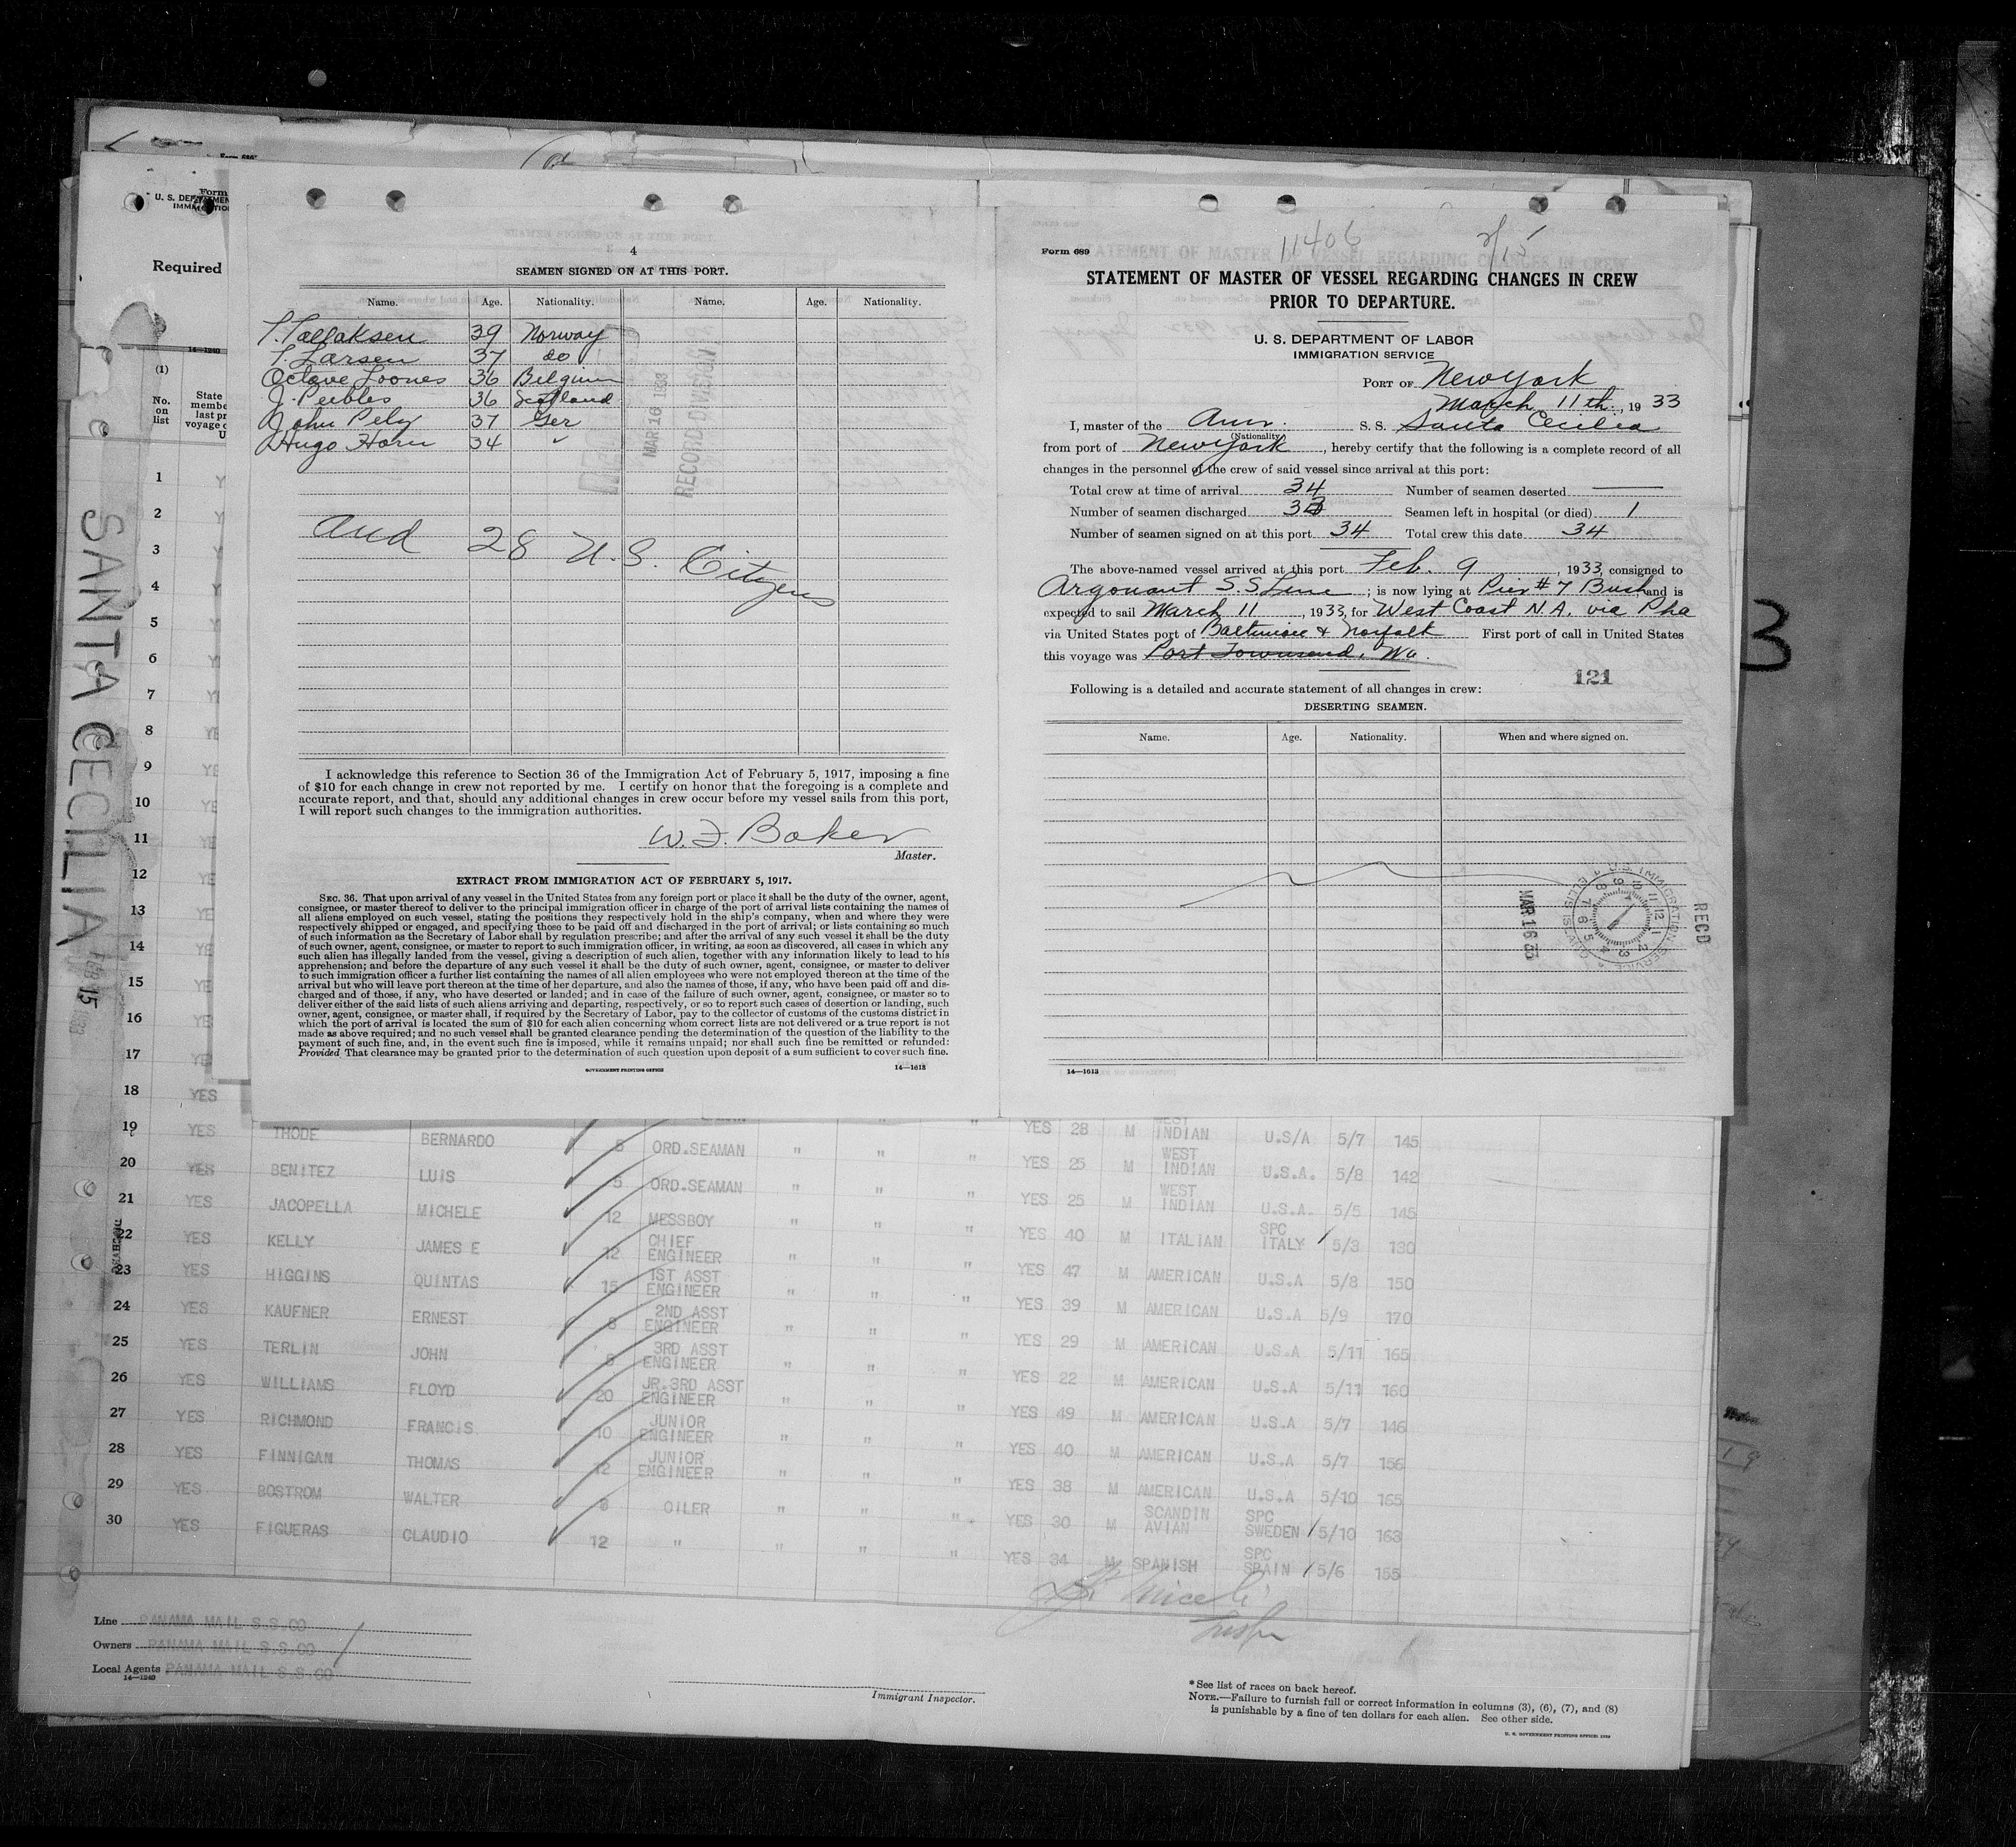 4
SEAMEN SIGNED ON AT THIS PORT.
Name. Age. Nationality. Name. Age. Nationality.
T. Tallaksen 39 Norway
T. Larsen 37 do
Octave Loones 36 Belgium
J. Peebles 36 Scotland
John Pely 37 Ger
Hugo Horn 34 "
And 28 U.S. Citizens
MAR 16 1933
RECORD DIVISION
I acknowledge this reference to Section 36 of the Immigration Act of February 5, 1917, imposing a fine
of $10 for each change in crew not reported by me. I certify on honor that the foregoing is a complete and
accurate report, and that, should any additional changes in crew occur before my vessel sails from this port,
I will report such changes to the immigration authorities.
W. F. Baker
Master.
EXTRACT FROM IMMIGRATION ACT OF FEBRUARY 5, 1917.
SEC. 36. That upon arrival of any vessel in the United States from any foreign port or place it shall be the duty of the owner, agent,
consignee, or master thereof to deliver to the principal immigration officer in charge of the port of arrival lists containing the names of
all aliens employed on such vessel, stating the positions they respectively hold in the ship's company, when and where they were
respectively shipped or engaged, and specifying those to be paid off and discharged in the port of arrival; or lists containing so much
of such information as the Secretary of Labor shall by regulation prescribe; and after the arrival of any such vessel it shall be the duty
of such owner, agent, consignee, or master to report to such immigration officer, in writing, as soon as discovered, all cases in which any
such alien has illegally landed from the vessel, giving a description of such alien, together with any information likely to lead to his
apprehension; and before the departure of any such vessel it shall be the duty of such owner, agent, consignee, or master to deliver
to such immigration officer a further list containing the names of all alien employees who were not employed thereon at the time of the
arrival but who will leave port thereon at the time of her departure, and also the names of those, if any, who have been paid off and dis-
charged and of those, if any, who have deserted or landed; and in case of the failure of such owner, agent, consignee, or master so to
deliver either of the said lists of such aliens arriving and departing, respectively, or so to report such cases of desertion or landing, such
owner, agent, consignee, or master shall, if required by the Secretary of Labor, pay to the collector of customs of the customs district in
which the port of arrival is located the sum of $10 for each alien concerning whom correct lists are not delivered or a true report is not
made as above required; and no such vessel shall be granted clearance pending the determination of the question of the liability to the
payment of such fine, and, in the event such fine is imposed, while it remains unpaid; nor shall such fine be remitted or refunded:
Provided That clearance may be granted prior to the determination of such question upon deposit of a sum sufficient to cover such fine.
GOVERNMENT PRINTING OFFICE 14—1613
11406 2/15
Form 689
STATEMENT OF MASTER OF VESSEL REGARDING CHANGES IN CREW
PRIOR TO DEPARTURE.
U. S. DEPARTMENT OF LABOR
IMMIGRATION SERVICE
PORT OF New York
March 11th, 1933
I, master of the Am. S. S. Santa Cecilia
(Nationality)
from port of New York, hereby certify that the following is a complete record of all
changes in the personnel of the crew of said vessel since arrival at this port:
Total crew at time of arrival 34 Number of seamen deserted ——
Number of seamen discharged 33 Seamen left in hospital (or died) 1
Number of seamen signed on at this port 34 Total crew this date 34
The above-named vessel arrived at this port Feb. 9, 1933, consigned to
Argonaut S.S. Line; is now lying at Pier #7 Bush and is
expected to sail March 11, 1933, for West Coast N.A. via Pha
via United States port of Baltimore & Norfolk First port of call in United States
this voyage was Port Townsend, Wa.
121
Following is a detailed and accurate statement of all changes in crew:
DESERTING SEAMEN.
Name. Age. Nationality. When and where signed on.
RECD
MAR 16 33
U.S. IMMIGRATION SERVICE ELLIS ISLAND
14—1613
Form
U. S. DEPARTMEN
IMMIGRATIO
Required
14—1240
(1)
No. on list
State
membe
last pr
voyage
U
SANTA CECILIA
FEB 15 1933
3
1 Y
2 Y
3 Y
4 Y
5 Y
6 Y
7 Y
8 YE
9 YE
10 YE
11 YE
12 YE
13 YE
14 YE
15 YE
16 YE
17 YE
18 YES
19 YES THODE BERNARDO 5 ORD.SEAMAN " " " YES 28 M WEST INDIAN U.S/A 5/7 145
20 YES BENITEZ LUIS 5 ORD.SEAMAN " " " YES 25 M WEST INDIAN U.S.A. 5/8 142
21 YES JACOPELLA MICHELE 12 MESSBOY " " " YES 25 M WEST INDIAN U.S.A. 5/5 145
22 YES KELLY JAMES E 12 CHIEF ENGINEER " " " YES 40 M ITALIAN SPC ITALY 5/3 130
23 YES HIGGINS QUINTAS 15 1ST ASST ENGINEER " " " YES 47 M AMERICAN U.S.A 5/8 150
24 YES KAUFNER ERNEST 8 2ND ASST ENGINEER " " " YES 39 M AMERICAN U.S.A 5/9 170
25 YES TERLIN JOHN 5 3RD ASST ENGINEER " " " YES 29 M AMERICAN U.S.A 5/11 165
26 YES WILLIAMS FLOYD 20 JR.3RD ASST ENGINEER " " " YES 22 M AMERICAN U.S.A 5/11 160
27 YES RICHMOND FRANCIS 10 JUNIOR ENGINEER " " " YES 49 M AMERICAN U.S.A 5/7 146
28 YES FINNIGAN THOMAS 12 JUNIOR ENGINEER " " " YES 40 M AMERICAN U.S.A 5/7 156
29 YES BOSTROM WALTER 8 OILER " " " YES 38 M AMERICAN U.S.A 5/10 165
30 YES FIGUERAS CLAUDIO 12 " " " " YES 30 M SCANDIN AVIAN SPC SWEDEN 5/10 163
YES 34 M SPANISH SPC SPAIN 5/6 155
Line PANAMA MAIL S.S.CO
Owners PANAMA MAIL S.S.CO
Local Agents PANAMA MAIL S.S.CO
14—1240
Immigrant Inspector.
* See list of races on back hereof.
NOTE.—Failure to furnish full or correct information in columns (3), (6), (7), and (8)
is punishable by a fine of ten dollars for each alien. See other side.